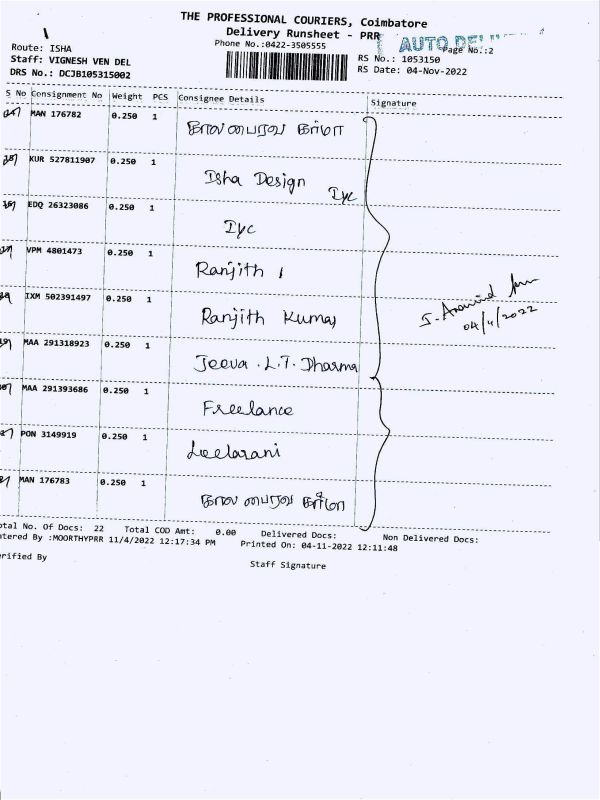 THE PROFESSIONAL COURIERS, Coimbatore
Delivery Runsheet - PRR
Phone No.:0422-3505555
Page No.:2
Route: ISHA
Staff: VIGNESH VEN DEL
DRS No.: DCJB105315002
RS No.: 1053150
RS Date: 04-Nov-2022
S No Consignment No Weight PCS Consignee Details Signature
MAN 176782 0.250 1 கால பைரவ கர்மா
KUR 527811907 0.250 1 Isha Design Iyc
EDQ 26323086 0.250 1 Iyc
VPM 4801473 0.250 1 Ranjith
IXM 502391497 0.250 1 Ranjith Kumar
04/11/2022
MAA 291318923 0.250 1 Jeeva .L.T. Dharma
MAA 291393686 0.250 1 Freelance
PON 3149919 0.250 1 Leelarani
MAN 176783 0.250 1 கால பைரவ கர்மா
otal No. Of Docs: 22 Total COD Amt: 0.00 Delivered Docs: Non Delivered Docs:
ntered By :MOORTHYPRR 11/4/2022 12:17:34 PM Printed On: 04-11-2022 12:11:48
erified By Staff Signature